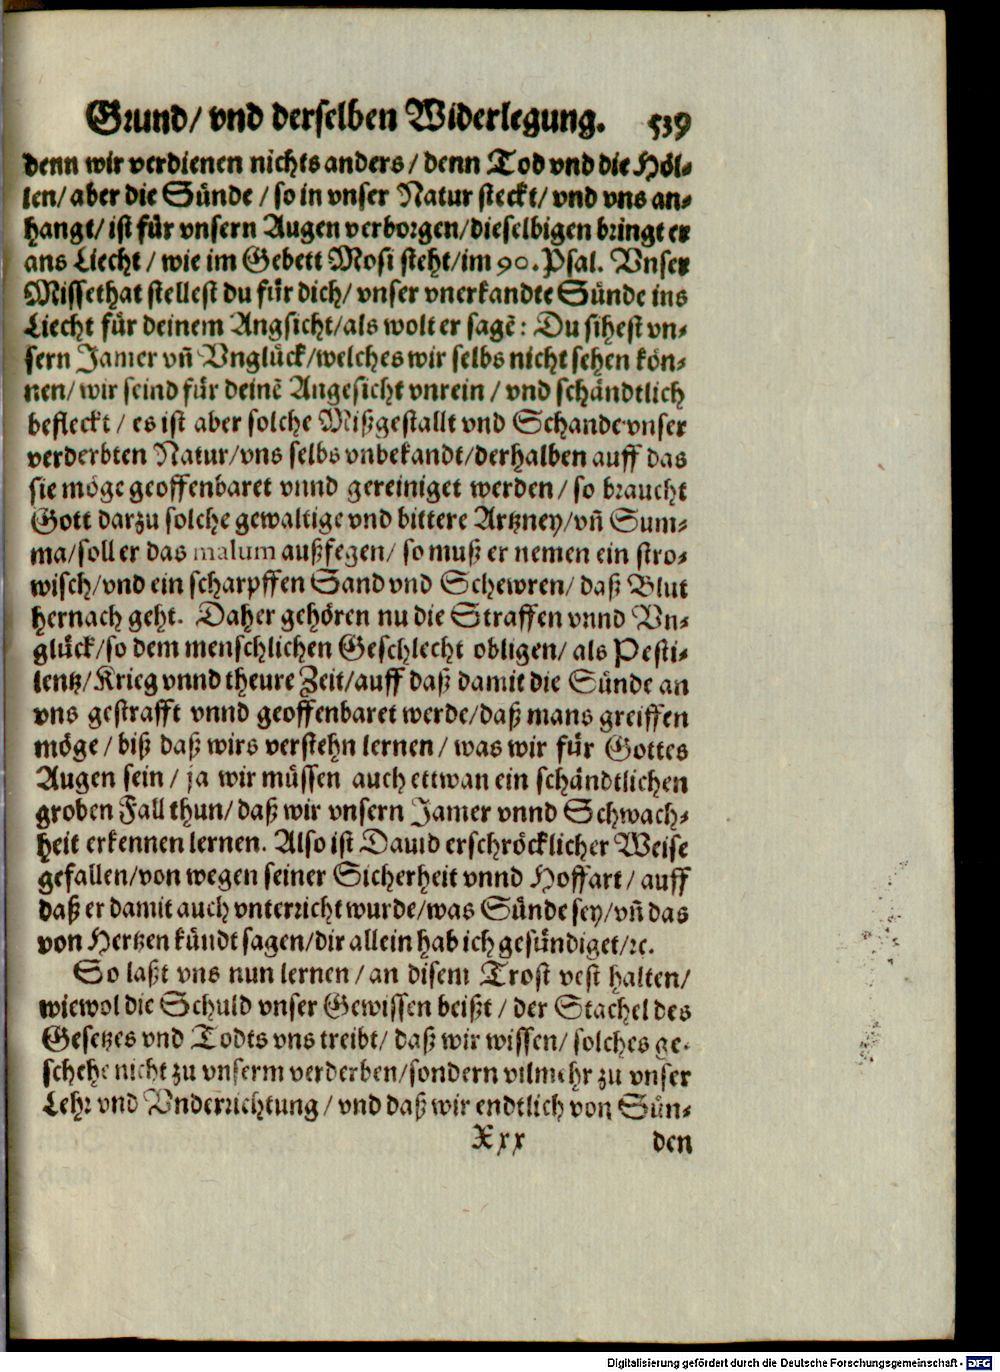 Grund/ vnd derselben Widerlegung. 539
denn wir verdienen nichts anders/ denn Tod vnd die Höl-
len/ aber die Sünde / so in vnser Natur steckt/ vnd vns an-
hangt/ ist für vnsern Augen verborgen/dieselbigen bringt er
ans Liecht / wie im Gebett Mosi steht/im 90. Psal. Vnser
Missethat stellest du für dich/ vnser vnerkandte Sünde ins
Liecht für deinem Angsicht/als wolt er sagẽ : Du sihest vn-
sern Jamer vñ Vnglück/welches wir selbs nicht sehen kön-
nen/ wir seind für deinẽ Angesicht vnrein / vnd schändtlich
befleckt / es ist aber solche Mißgestallt vnd Schande vnser
verderbten Natur/vns selbs vnbekandt/derhalben auff das
sie möge geoffenbaret vnnd gereiniget werden/ so braucht
Gott darzu solche gewaltige vnd bittere Artzney/vñ Sum-
ma/soll er das malum außfegen/ so muß er nemen ein stro-
wisch/vnd ein scharpffen Sand vnd Schewren/ daß Blut
hernach geht. Daher gehören nu die Straffen vnnd Vn-
glück/so dem menschlichen Geschlecht obligen/ als Pesti-
lentz/Krieg vnnd theure Zeit/auff daß damit die Sünde an
vns gestrafft vnnd geoffenbaret werde/daß mans greiffen
möge / biß daß wirs verstehn lernen / was wir für Gottes
Augen sein / ja wir müssen auch ettwan ein schändtlichen
groben Fall thun/ daß wir vnsern Jamer vnnd Schwach-
heit erkennen lernen. Also ist Dauid erschröcklicher Weise
gefallen/von wegen seiner Sicherheit vnnd Hoffart / auff
daß er damit auch vnterricht wurde/was Sünde sey/vñ das
von Hertzen kündt sagen/dir allein hab ich gesündiget/ꝛc.
So laßt vns nun lernen / an disem Trost vest halten/
wiewol die Schuld vnser Gewissen beißt / der Stachel des
Gesetzes vnd Todts vns treibt/ daß wir wissen/ solches ge-
schehe nicht zu vnserm verderben/sondern vilmehr zu vnser
Lehr vnd Vnderrichtung / vnd daß wir endtlich von Sün-
Xxx den
Digitalisierung gefördert durch die Deutsche Forschungsgemeinschaft - DFG